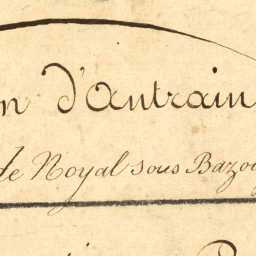 n d'Antrain
de Noyal sous Bazou